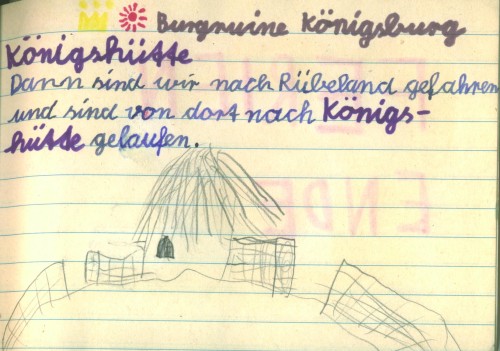 Burgruine Königsburg
Königshütte
Dann sind wir nach Rübeland gefahren
und sind von dort nach Königs-
hütte gelaufen.
ENDE